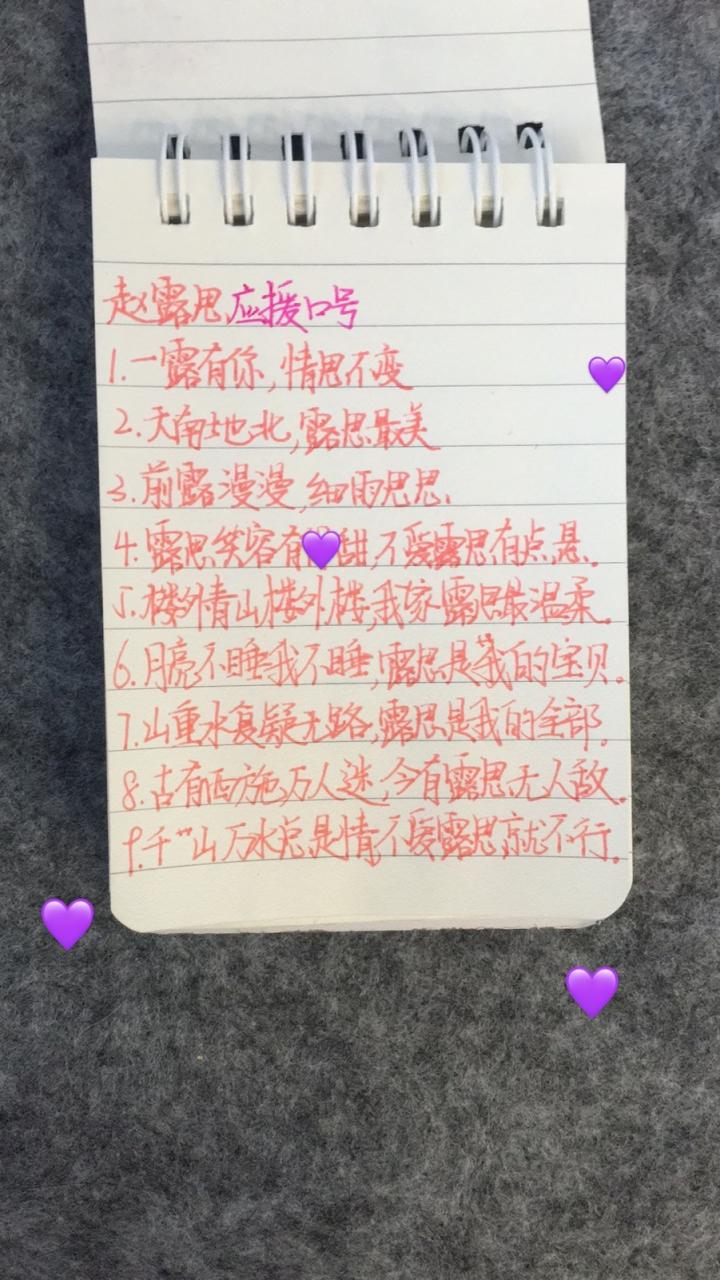 赵露思应援口号
1.一露有你,情思不变
2.天南地北,露思最美
3.前露漫漫,细雨思思.
4.露思笑容有甜,不爱露思有点悬.
5.楼外青山楼外楼,我家露思最温柔.
6.月亮不睡我不睡,露思是我的宝贝.
7.山重水复疑无路,露思是我的全部.
8.古有西施万人迷,今有露思无人敌.
9.千山万水总是情,不爱露思就不行.